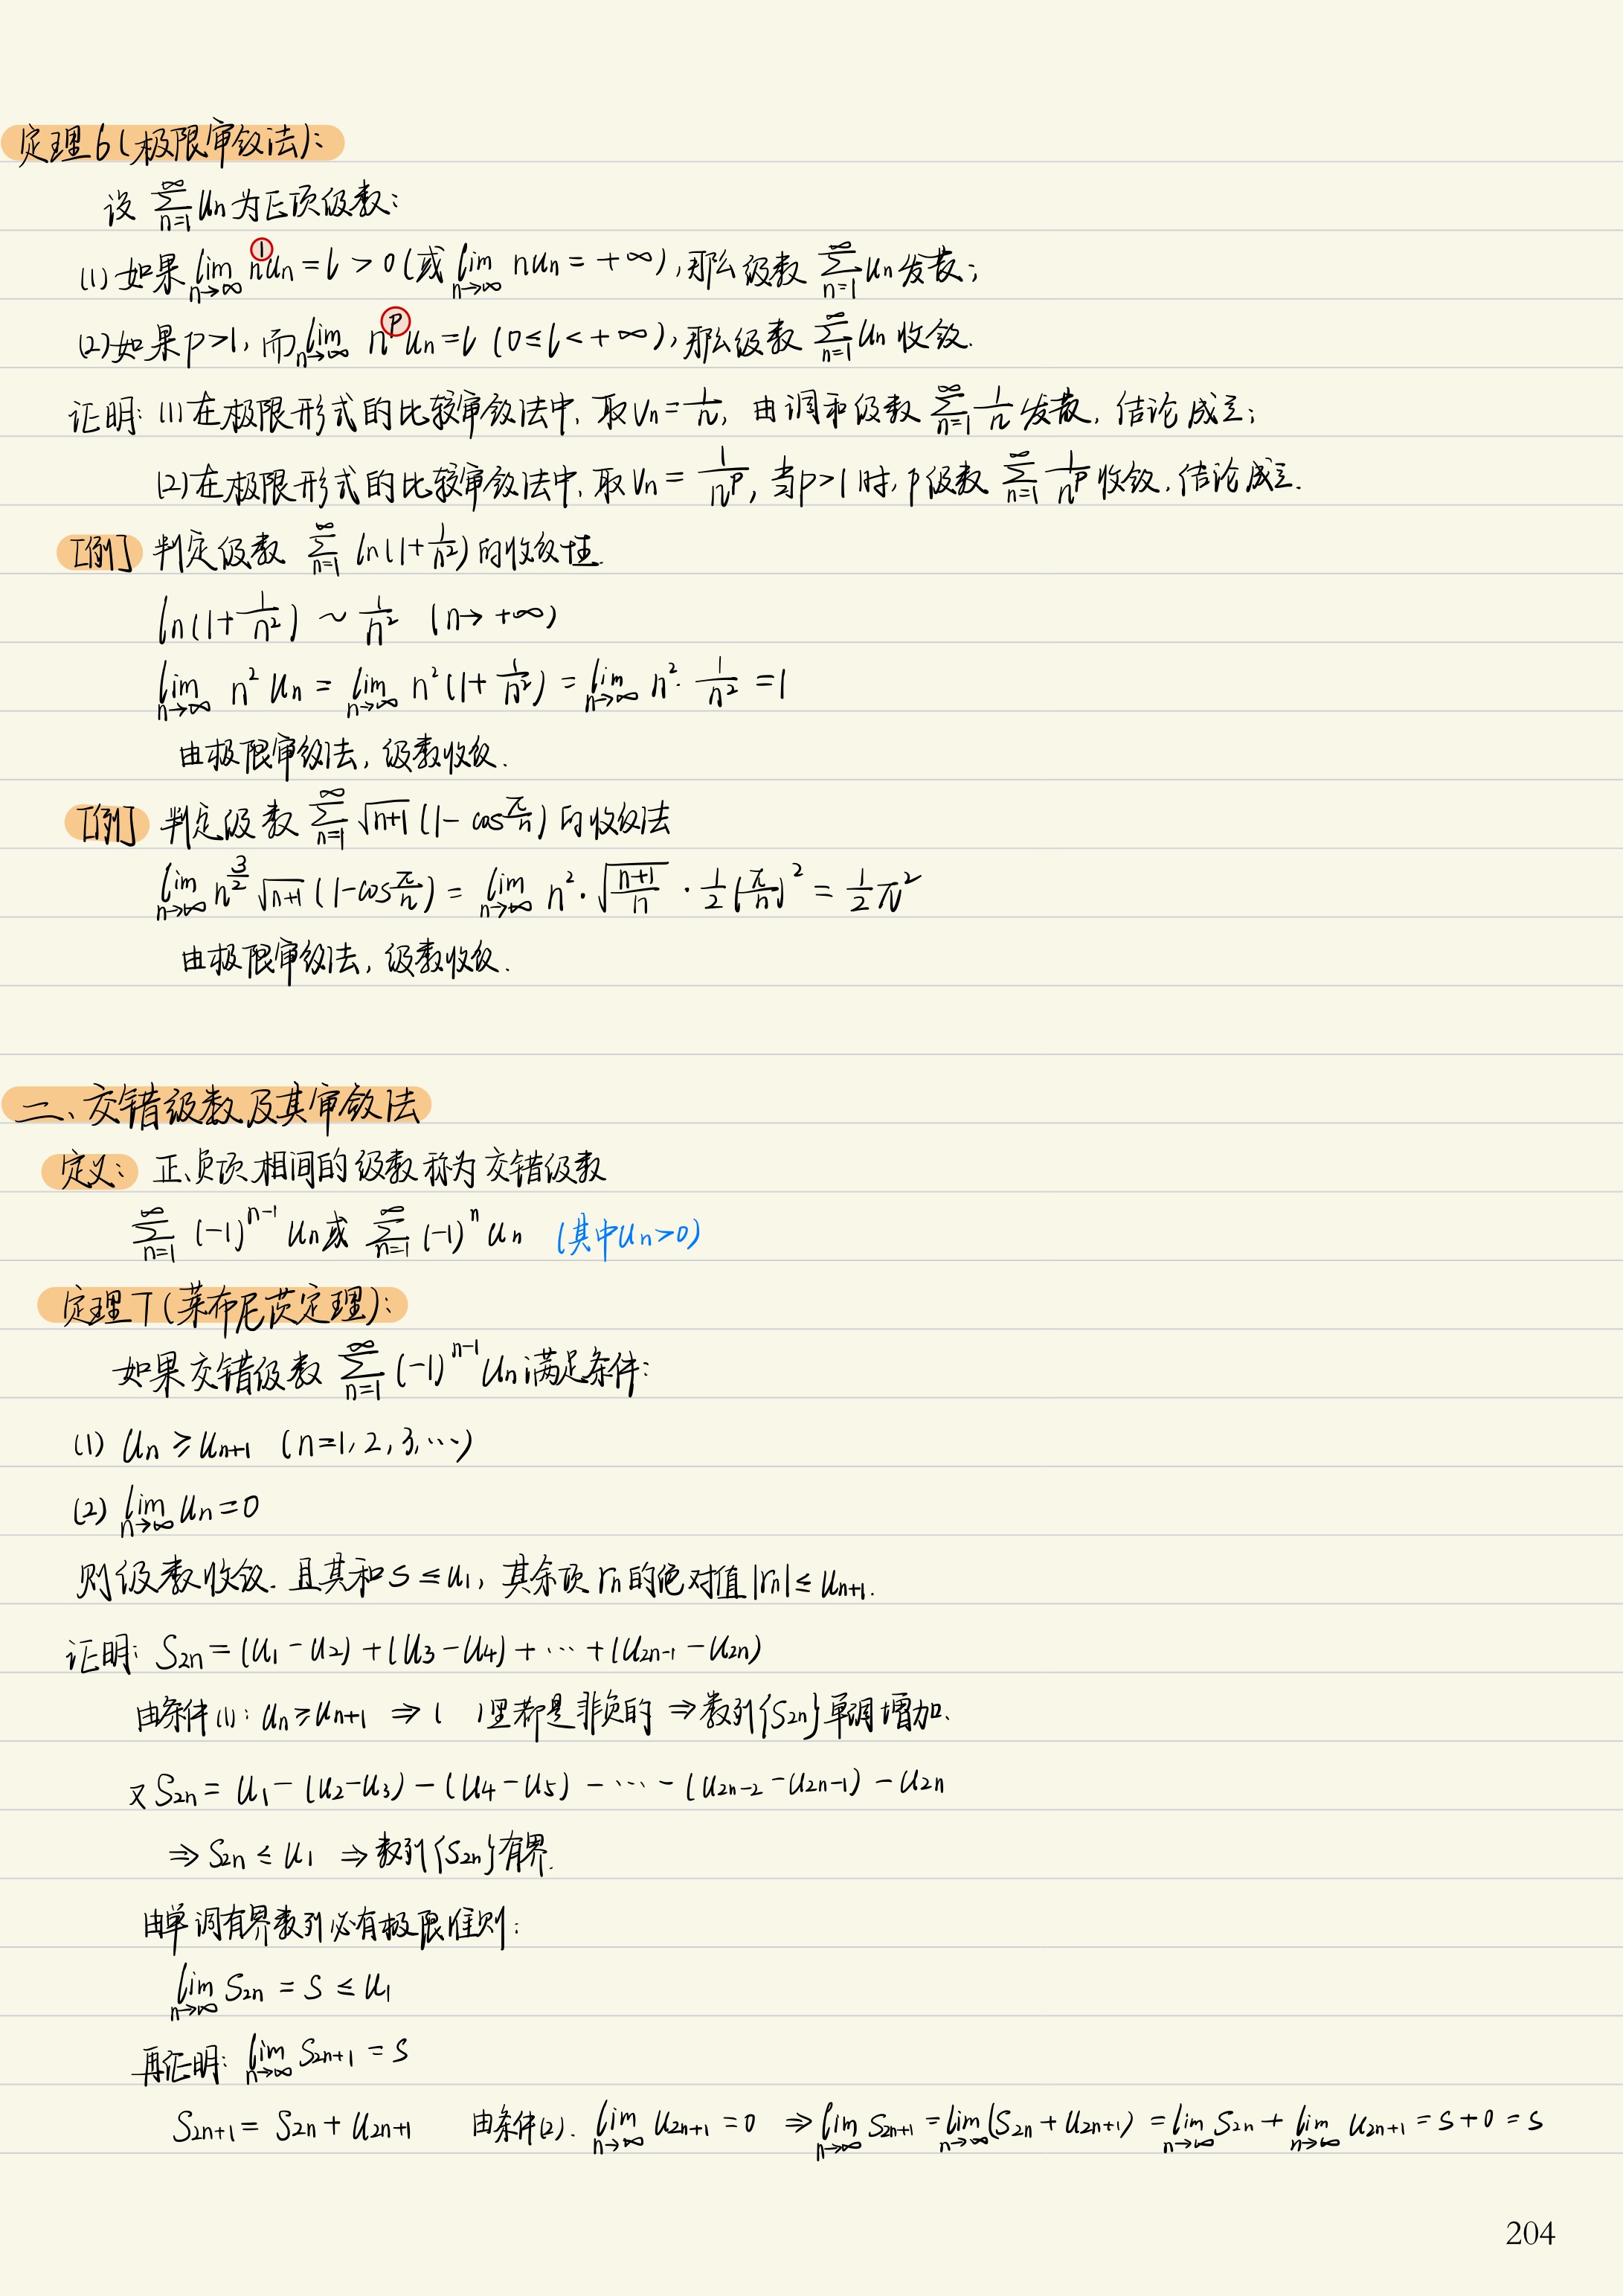 定理6(极限审敛法):
设 ∑_{n=1}^{∞} u_n 为正项级数:
(1) 如果 lim_{n→∞} n^① u_n = l > 0 (或 lim_{n→∞} n u_n = +∞), 那么级数 ∑_{n=1}^{∞} u_n 发散;
(2) 如果 p>1, 而 lim_{n→∞} n^p u_n = l (0≤l<+∞), 那么级数 ∑_{n=1}^{∞} u_n 收敛.
证明: (1) 在极限形式的比较审敛法中, 取 v_n = 1/n, 由调和级数 ∑_{n=1}^{∞} 1/n 发散, 结论成立;
(2) 在极限形式的比较审敛法中, 取 v_n = 1/n^p, 当 p>1 时, p级数 ∑_{n=1}^{∞} 1/n^p 收敛, 结论成立.
[例] 判定级数 ∑_{n=1}^{∞} ln(1+1/n²) 的收敛性.
ln(1+1/n²) ~ 1/n² (n→+∞)
lim_{n→∞} n² u_n = lim_{n→∞} n²(1+1/n²) = lim_{n→∞} n²·1/n² = 1
由极限审敛法, 级数收敛.
[例] 判定级数 ∑_{n=1}^{∞} √(n+1) (1-cos π/n) 的收敛法
lim_{n→∞} n^{3/2} √(n+1) (1-cos π/n) = lim_{n→∞} n²·√((n+1)/n)·1/2 (π/n)² = 1/2 π²
由极限审敛法, 级数收敛.
二、交错级数及其审敛法
定义: 正、负项相间的级数称为交错级数
∑_{n=1}^{∞} (-1)^{n-1} u_n 或 ∑_{n=1}^{∞} (-1)^n u_n (其中u_n>0)
定理7(莱布尼茨定理):
如果交错级数 ∑_{n=1}^{∞} (-1)^{n-1} u_n 满足条件:
(1) u_n ≥ u_{n+1} (n=1, 2, 3, ⋯)
(2) lim_{n→∞} u_n = 0
则级数收敛. 且其和 s ≤ u_1, 其余项 r_n 的绝对值 |r_n| ≤ u_{n+1}.
证明: S_{2n} = (u_1-u_2)+(u_3-u_4)+⋯+(u_{2n-1}-u_{2n})
由条件(1): u_n ≥ u_{n+1} ⇒ ( )里都是非负的 ⇒ 数列{S_{2n}}单调增加.
又 S_{2n} = u_1-(u_2-u_3)-(u_4-u_5)-⋯-(u_{2n-2}-u_{2n-1})-u_{2n}
⇒ S_{2n} ≤ u_1 ⇒ 数列{S_{2n}}有界.
由单调有界数列必有极限准则:
lim_{n→∞} S_{2n} = S ≤ u_1
再证明: lim_{n→∞} S_{2n+1} = S
S_{2n+1} = S_{2n} + u_{2n+1} 由条件(2). lim_{n→∞} u_{2n+1} = 0 ⇒ lim_{n→∞} S_{2n+1} = lim_{n→∞} (S_{2n}+u_{2n+1}) = lim_{n→∞} S_{2n} + lim_{n→∞} u_{2n+1} = S+0 = S
204